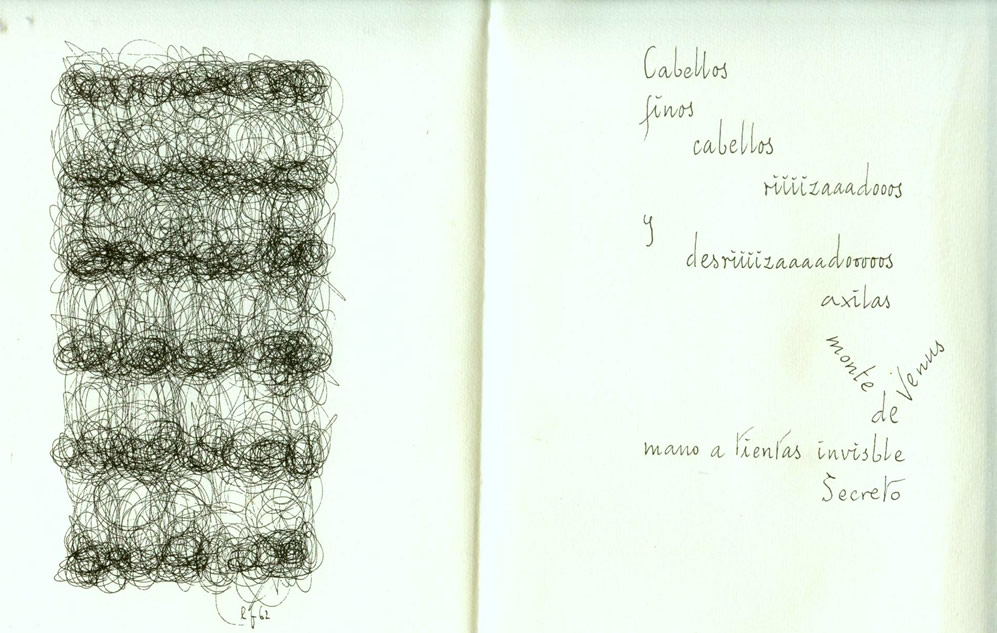 Cabellos
finos
cabellos
riiiizaaadooos
y
desriiiizaaaadooooos
axilas
monte
de
Venus
mano a tientas invisble
Secreto